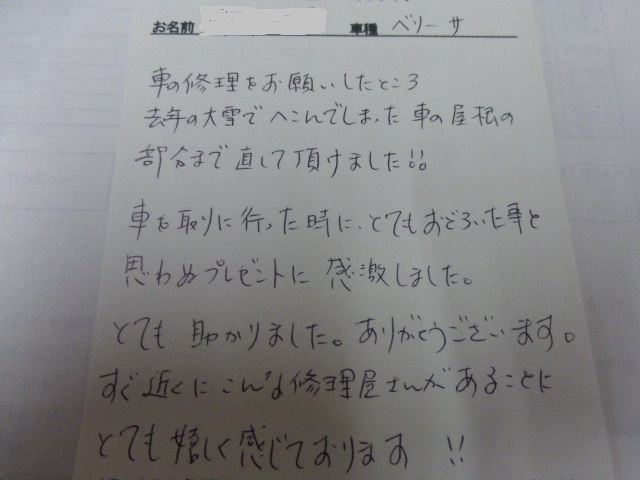 お名前 車種 ベリーサ
車の修理をお願いしたところ
去年の大雪でへこんでしまった車の屋根の
部分まで直して頂けました!!
車を取りに行った時に、とてもおどろいた事と
思わぬプレゼントに感激しました。
とても助かりました。ありがとうございます。
すぐ近くにこんな修理屋さんがあることに
とても嬉しく感じております!!